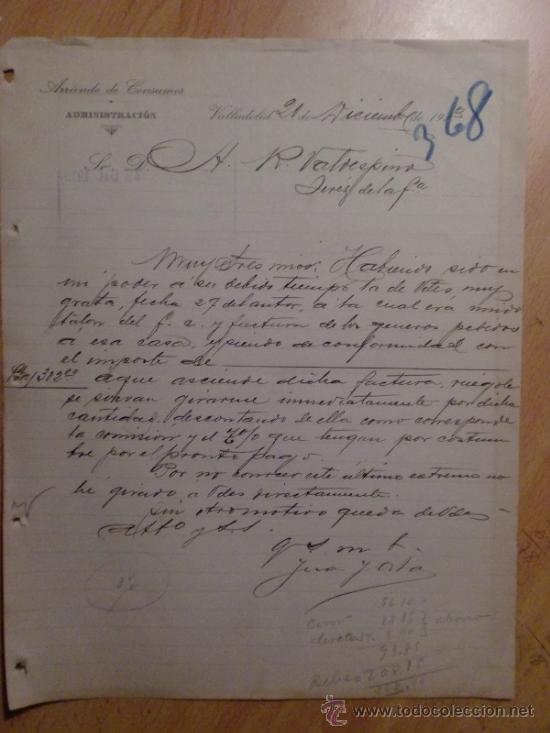 Arriendo de Consumos
ADMINISTRACIÓN
Valladolid 21 de Diciembre de 19
368
Sr. D. A. R. Valdespino
Jeréz de la fra
Muy Sres mios: Habiendo sido en
mi poder a su debido tiempo la de Vdes muy
grata, fecha 27 del anter, a la cual era unido
talon del f. c. y factura de los generos pedidos
a esa casa, y siendo de conformidad con
el importe de
Ptas 302
a que asciende dicha factura, ruegole
se sirvan girarme inmediatamente por dicha
cantidad, descontando de ella como corresponde
la comision y el % que tengan por costum
bre por el pronto pago.
Por no conocer este último extremo no
hé girado, a Vdes directamente.
Sin otro motivo queda de Vdes
atto y s.s.
q s m b.
56.10
8.00
93.85
208.15
todocoleccion
FOTO © TODOCOLECCION.NET
http://www.todocoleccion.net